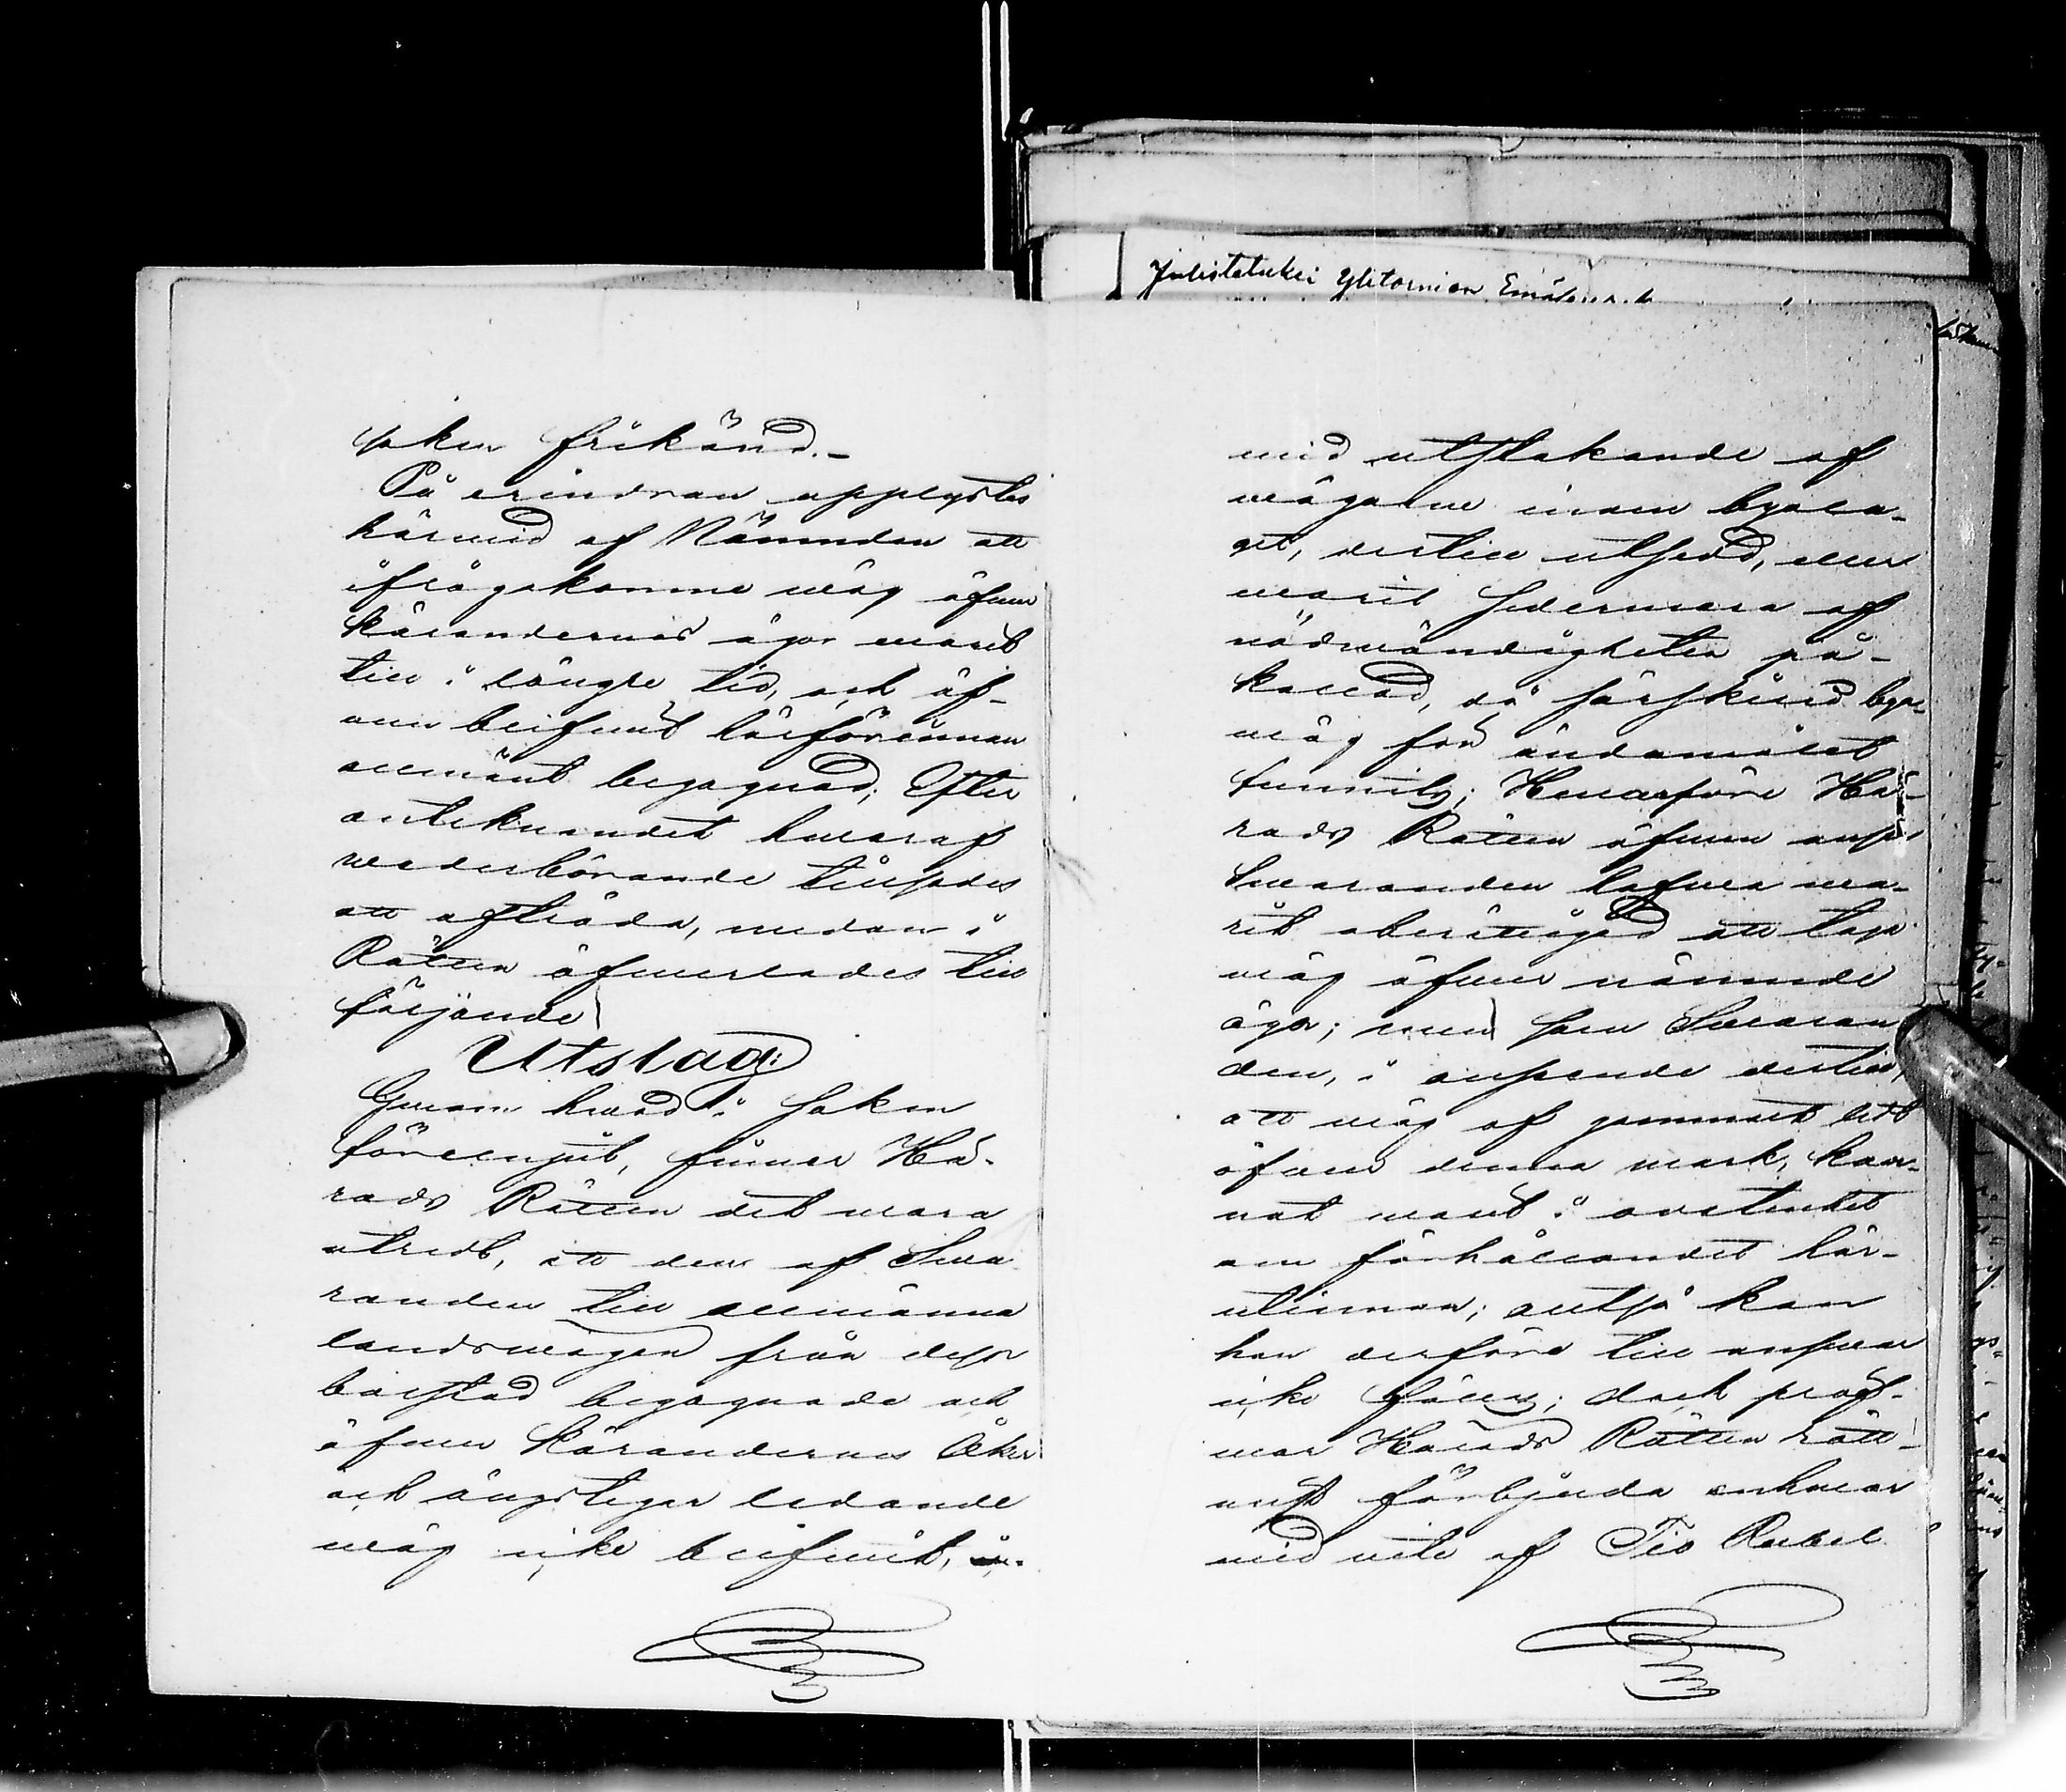 Julistetuksi Ylitornion
saken frikänd.-
På erindran upplystes
härwid af Nämnden att
ifrågakomne wäg öfwer
Kärandernas ägor warit
till i längre tid, och äf-
wen blifwit härförinnan
allmänt begagnad; Efter
antecknandet hwaraf
wederbörande tillsades
att afträda, medan i
Rätten öfwerlades till
följande
Utslag:
Genom hwad i saken
förelupit, finner Hä-
rads Rätten det wara
utredt, att den af Swa
randen till allmänna
landswägen från dess
bolstad begagnade och
öfwer Kärandernes Åker
och ängstegar ledande
wäg icke blifwit,
wid utstakande af
wägarne inom byala-
get, dertill utsedd, eller
warit sedermera af
nödwändigheten på-
kallad, då särskild bya
wäg för ändamålet
funnits; Hwarföre Hä-
rads Rätten äfwen anser
Swaranden hafwa wa-
rit oberättigad att taga
wäg öfwer nämnde
ägor; men som Swaran
den, i anseende dertill,
att wäg af gammalt ledt
öfwer denna mark, kun-
nat warit i owetenhet
om förhållandet här-
utinnan; altså kan
han derföre till answar
icke fällas; dock pröf-
war Härads Rätten rätt-
wist förbjuda enhwar
wid wite af Tio Rubel